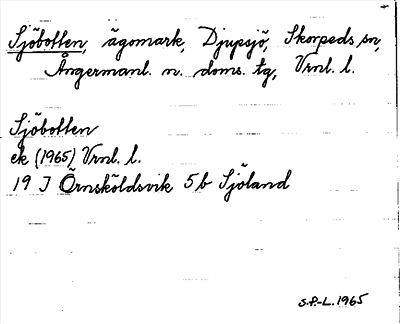 Sjöbotten, ägomark, Djupsjö, Skorpeds sn,
Ångermanl. n. doms. tg, Vrnl. l.
Sjöbotten
ek (1965) Vrnl. l.
19 J Örnsköldsvik 5b Sjöland
S.P.-L. 1965